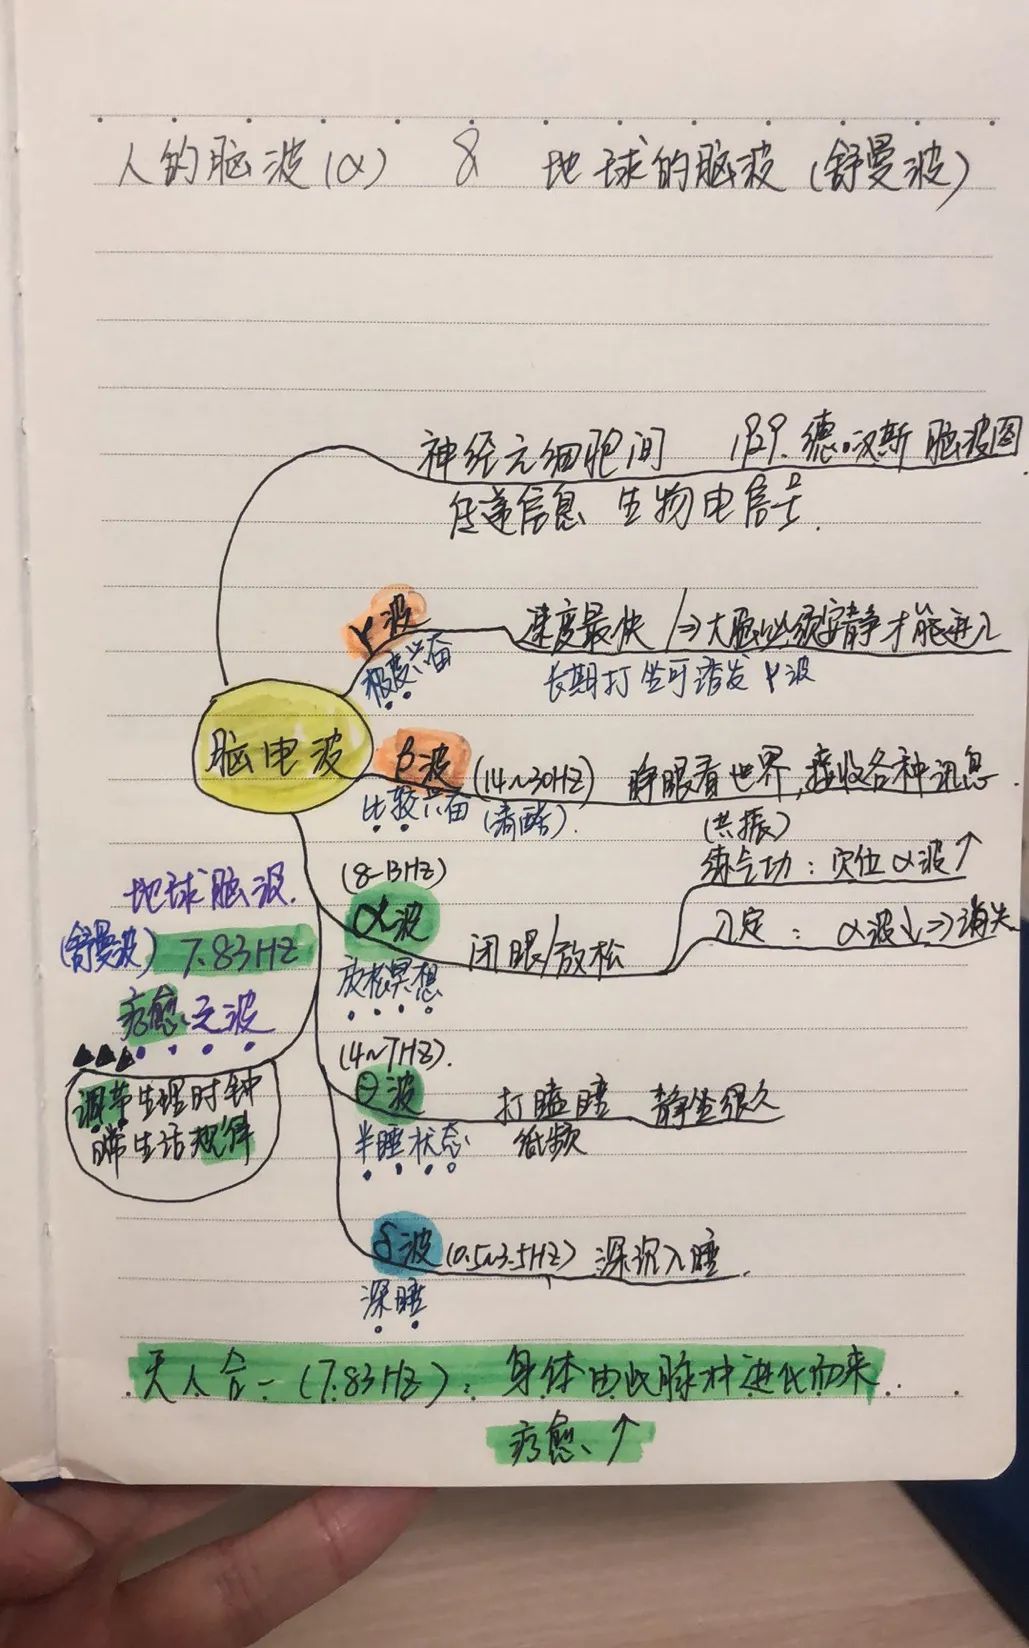 人的脑波(α) & 地球的脑波(舒曼波)
神经元细胞间 1929. 德.汉斯 脑波图
传递信息 生物电信号.
γ波 速度最快 / ⇒大脑必须安静才能进入
极度兴奋 长期打坐可诱发γ波
脑电波
β波 (14~30HZ) 睁眼看世界,接收各种讯息.
比较兴奋 (清醒).
(共振)
练气功: 穴位α波↑
(8-13HZ)
α波 闭眼/放松
入定: α波↓⇒消失
放松冥想
地球脑波.
(舒曼波) 7.83HZ
疗愈之波
调节生理时钟
生活规律
(4~7HZ).
θ波 打瞌睡 静坐很久
半睡状态 低频
δ波 (0.5~3.5HZ) 深沉入睡.
深睡
天人合一 (7.83HZ): 身体由此脉冲进化而来..
疗愈↑